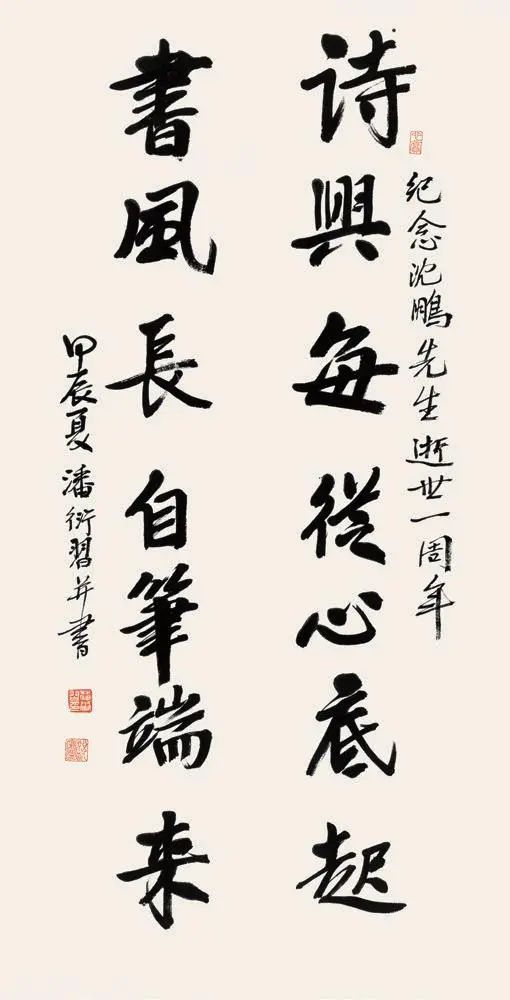 纪念沈鹏先生逝世一周年
詩興每從心底起
書風長自筆端来
甲辰夏潘衍習并書